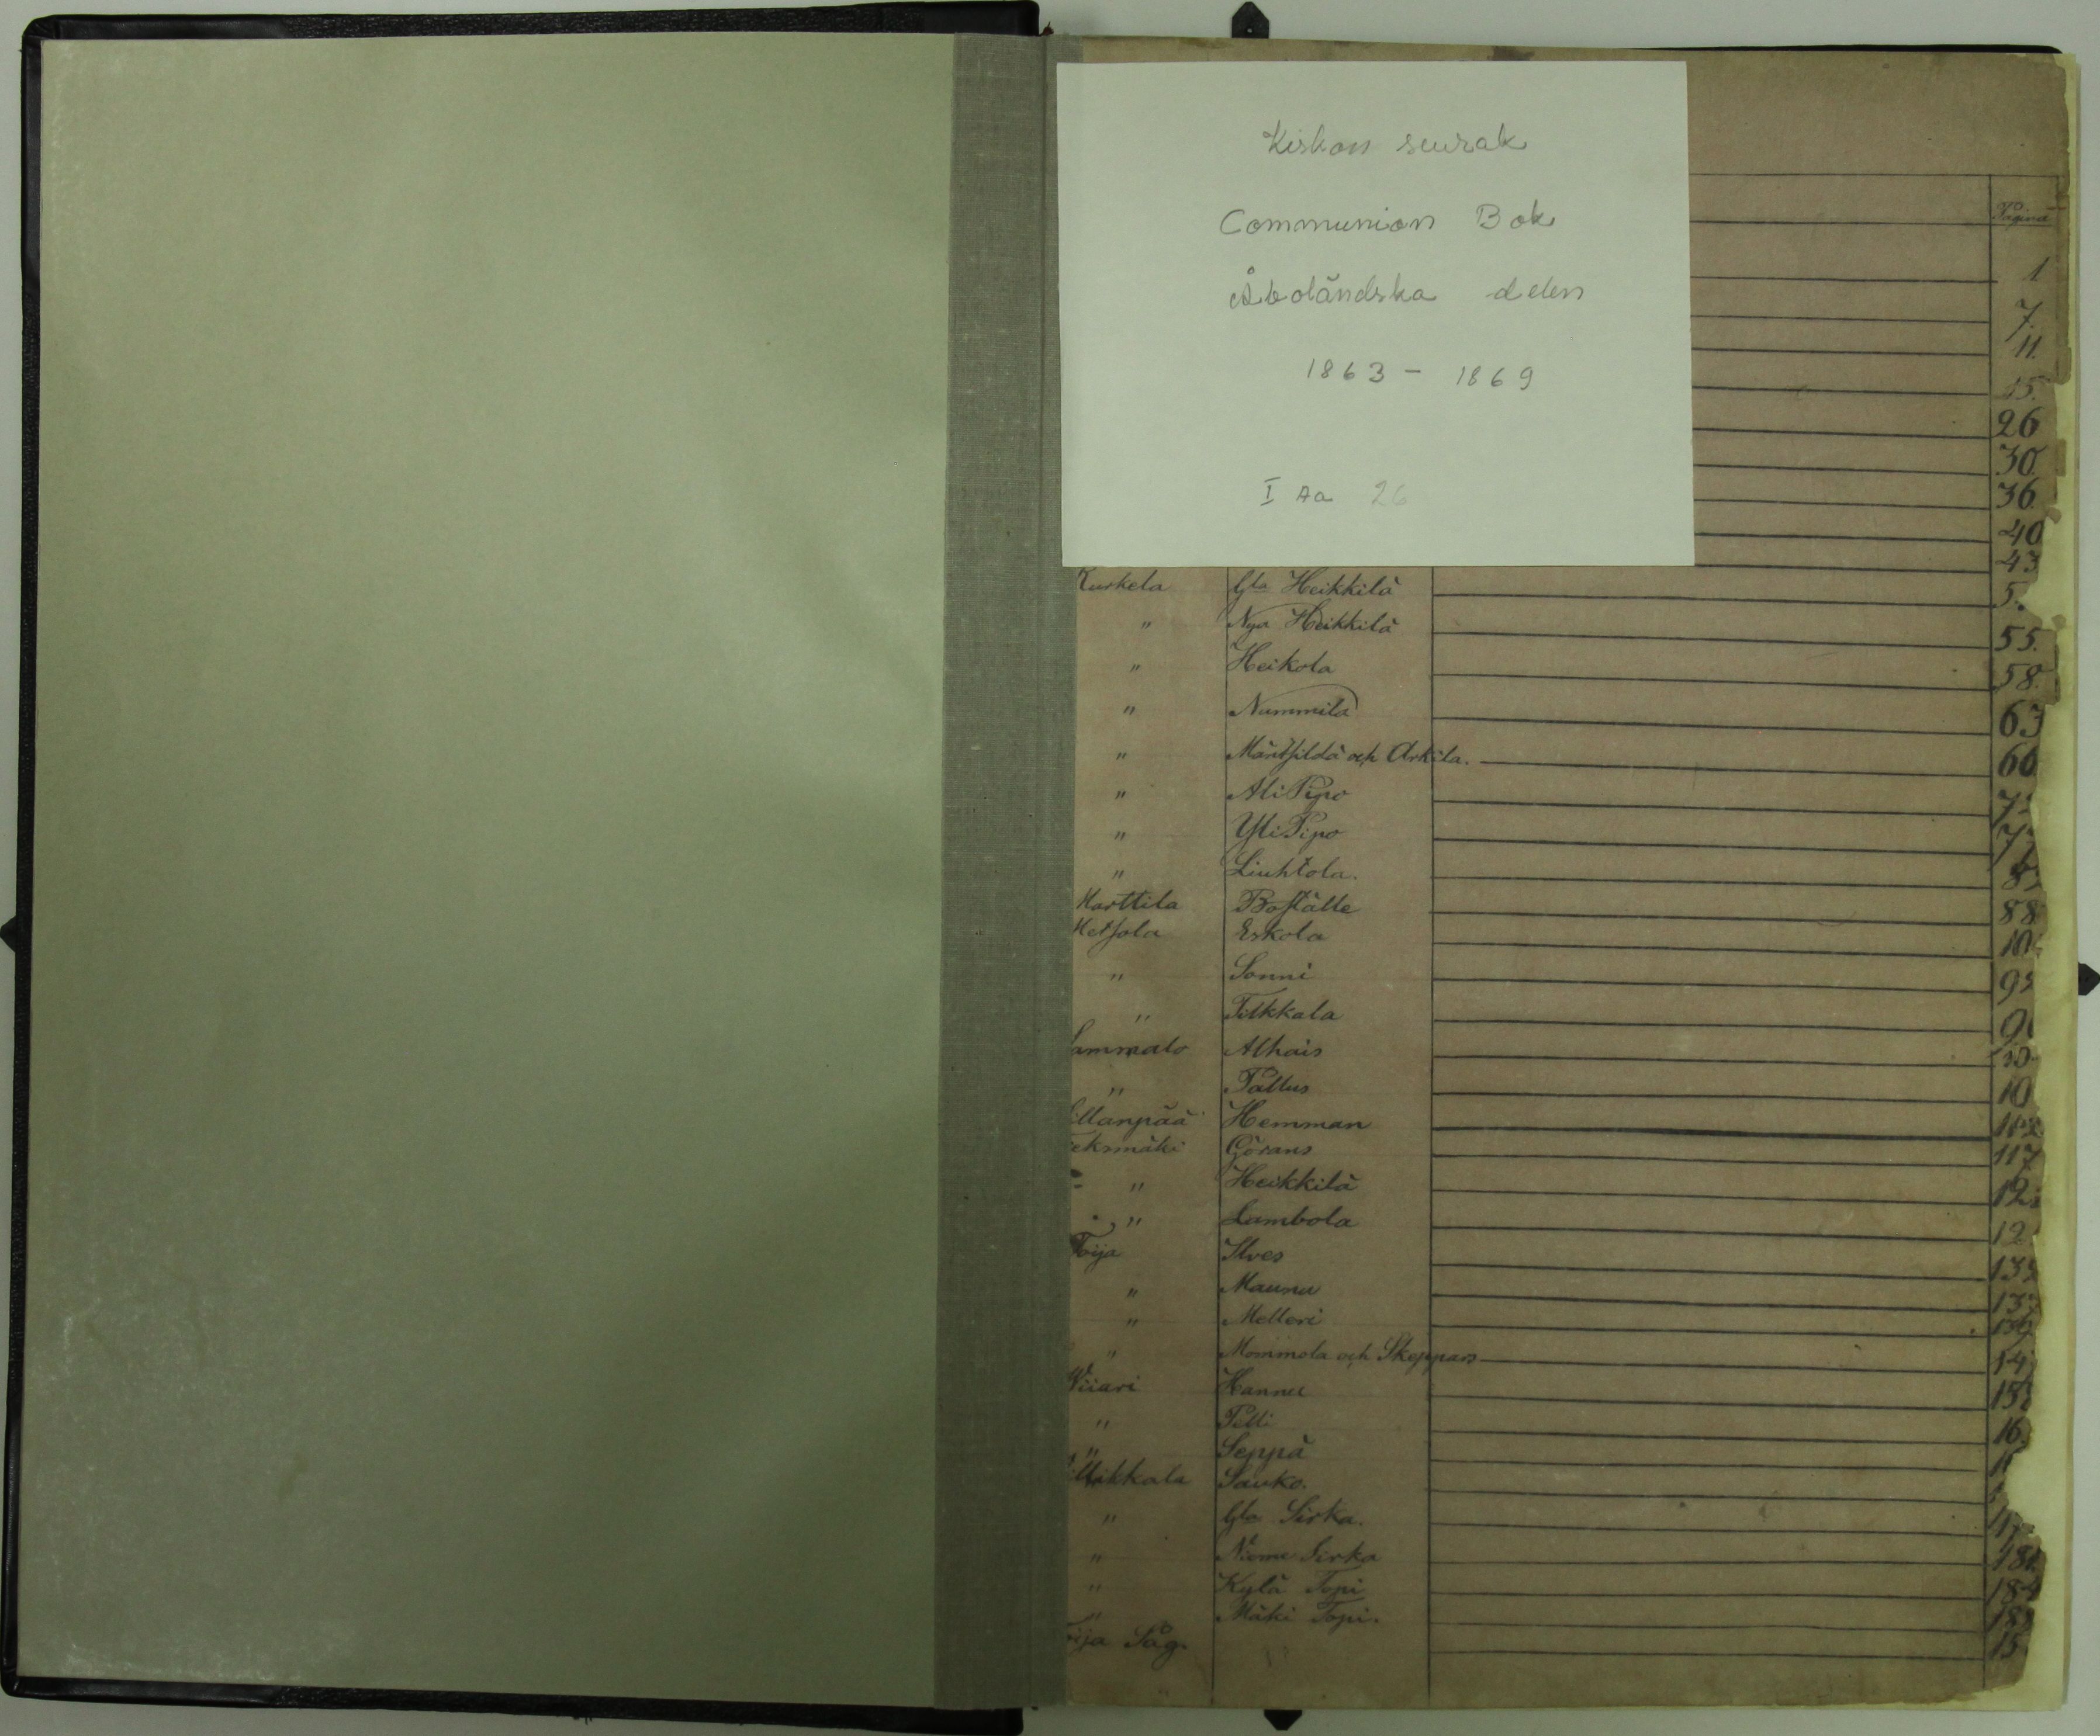 Kiskon seurak
Communion Bok
Åboländska delen
1863 - 1869
I Aa 26
Pagina
1
7.
11.
15.
26
30.
36.
40
43
Kurkela Gla Heikkilä 5.
" Nya Heikkilä 55.
" Heikola 58.
" Nummila 63
" Mäntsildä och Arkila. 66
" Ali Pipo 7
" Yli Pipo 7
" Liuhtola. 8
Marttila Boställe 88
Metsola Eskola 10
" Sonni 9
" Tilkkala 9
ammalo Alhais 10
" Pallus 10
illanpää Hemman 112
eksmäki Görans 117
" Heikkilä 12
" Lumbola 12
Toija Ilves 13
" Maunu 13
" Melleri 139.
" Mommola och Skeppars 14
Wiiari Hannu 15
" Pilli 16
" Seppä 1
illikkala Sauko.
" Gla Sirka. 17
" Nieme Sirka 181.
" Kylä Topi 184
" Mäki Topi. 18
ija Såg. 15